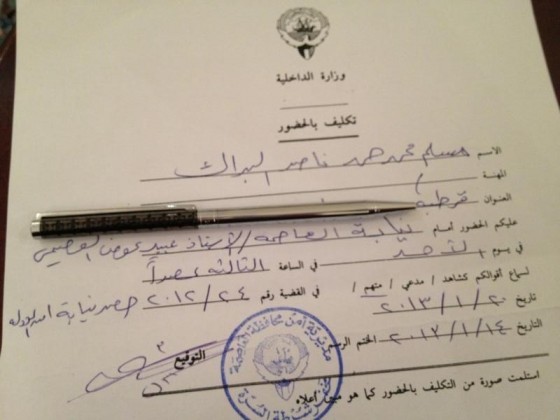 وزارة الداخلية
تكليف بالحضور
الاسم مسلم محمد حمد ناصر البراك
المهنة
العنوان قرطبة
عليكم الحضور أمام نيابة العاصمة / الأستاذ عبيد عوض العصيمي
في يوم الأحد في الساعة الثالثة عصراً
لسماع أقوالكم كشاهد / مدعي / متهم / في القضية رقم ٢٠١٢/٢٤ حصر نيابة امن الدولة
تاريخ ٢٠١٣/١/٢٠
التاريخ ٢٠١٣/١/١٤ الختم الرسمي التوقيع
استلمت صورة من التكليف بالحضور كما هو مبين أعلاه
مديرية أمن محافظة العاصمة